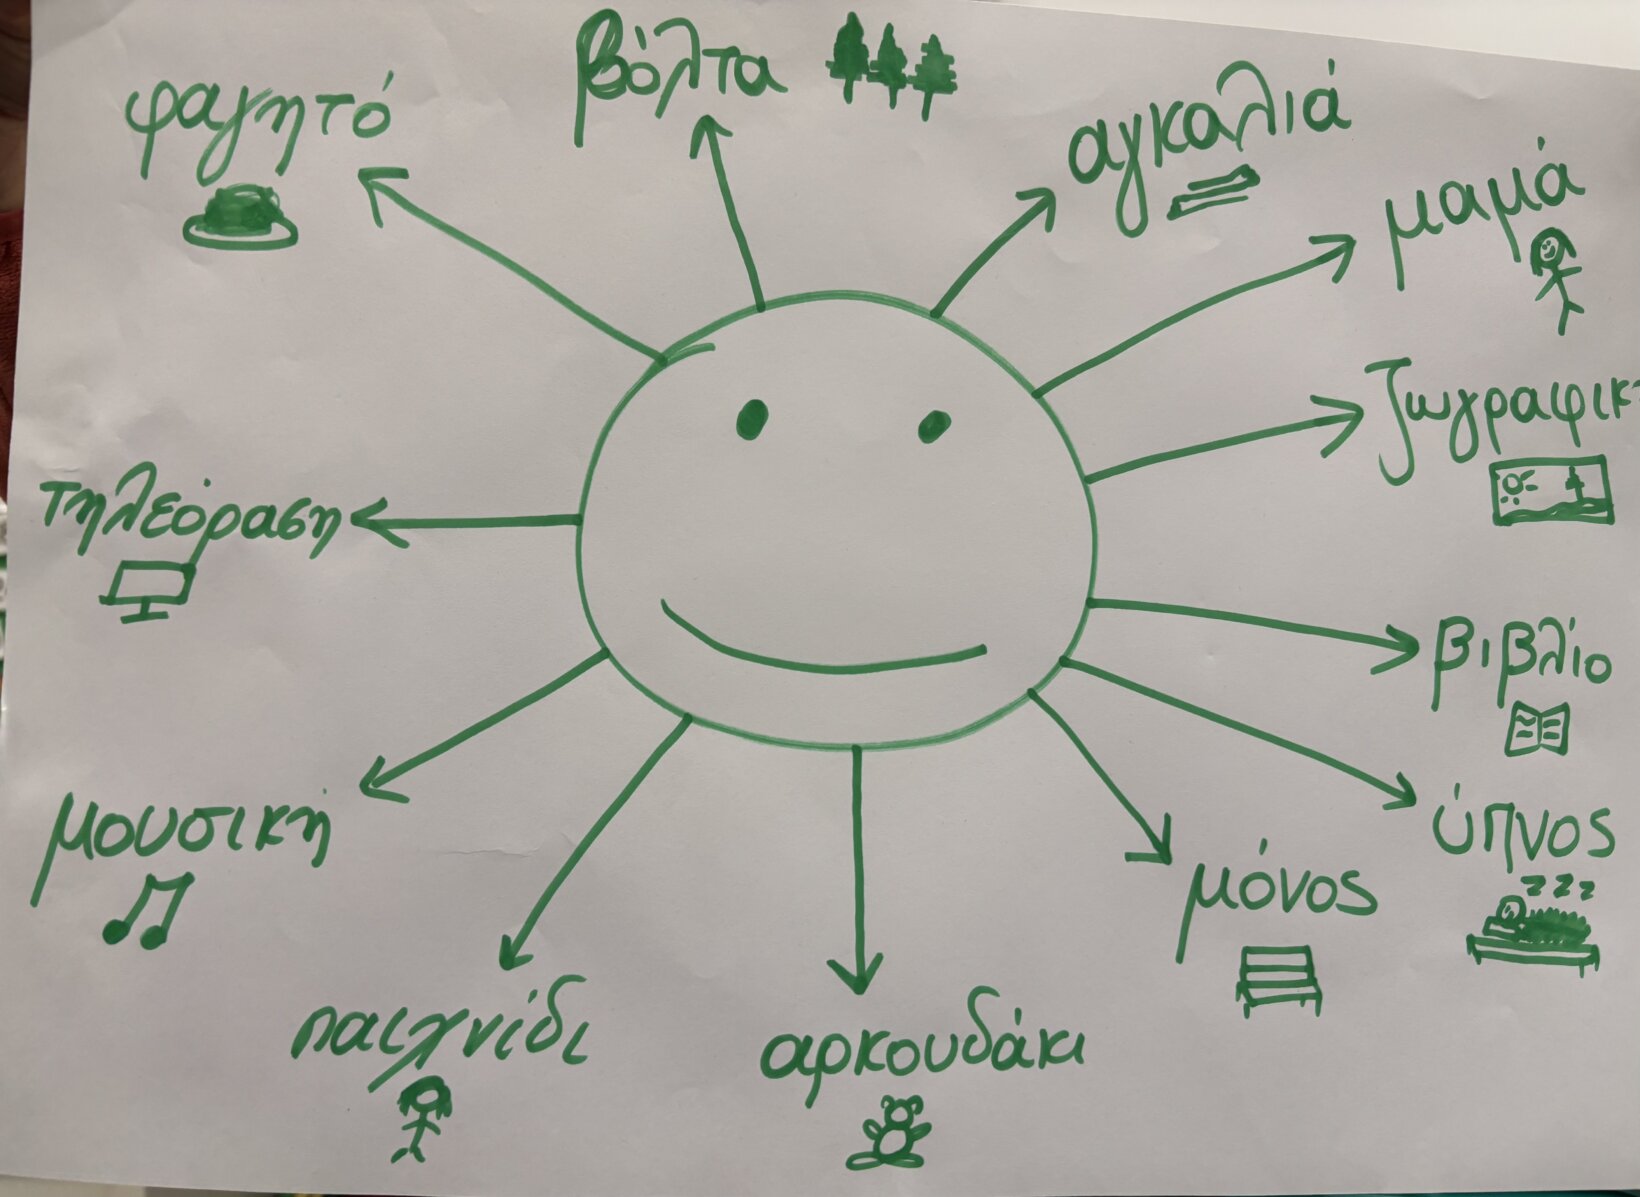 φαγητό
βόλτα
αγκαλιά
μαμά
ζωγραφικ
τηλεόραση
βιβλίο
ύπνος
zzz
μόνος
μουσική
παιχνίδι
αρκουδάκι